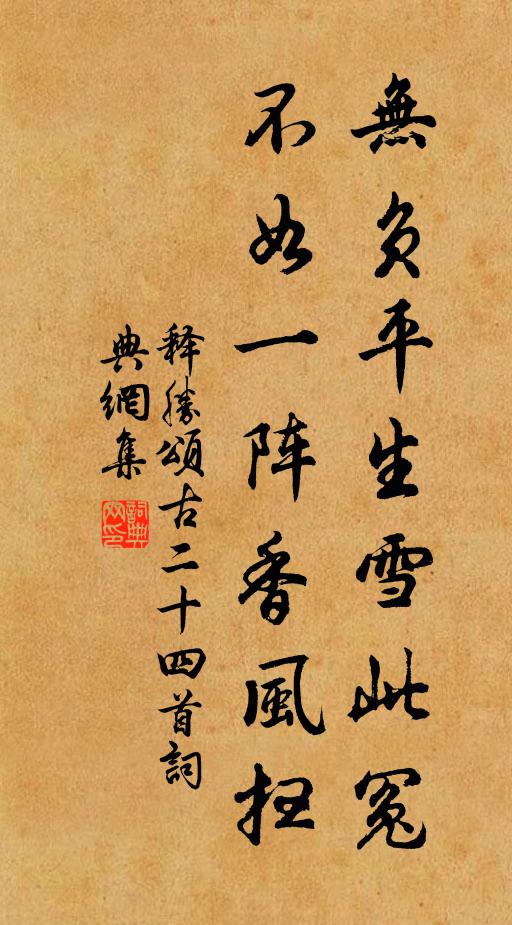 無負平生雪此冤
不如一阵香風扫
释勝頌古二十四首詞
典網集
詞典
网印